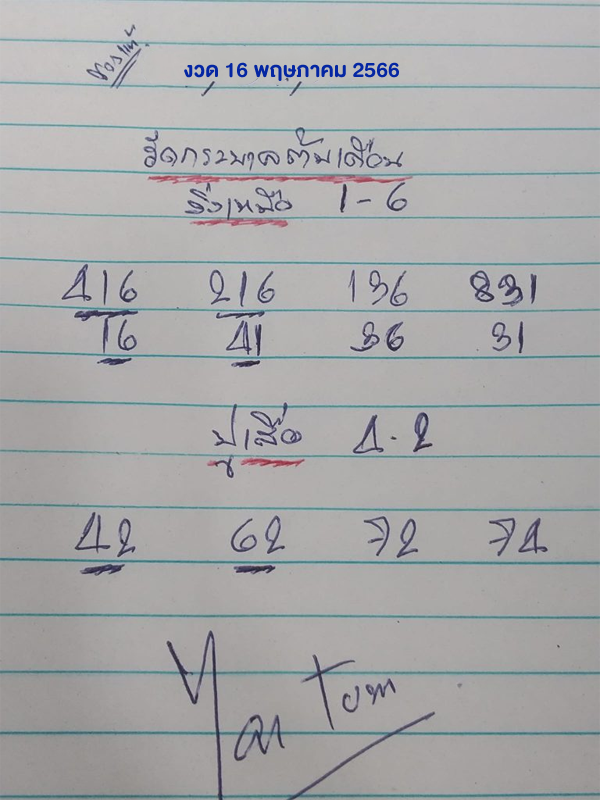 ของแท้
งวด 16 พฤษภาคม 2566
รีดกระบาลต้นเดือน
วิ่งเหนือ 1-6
416 216 136 831
16 41 36 31
ปูเสือ 4-2
42 62 72 74